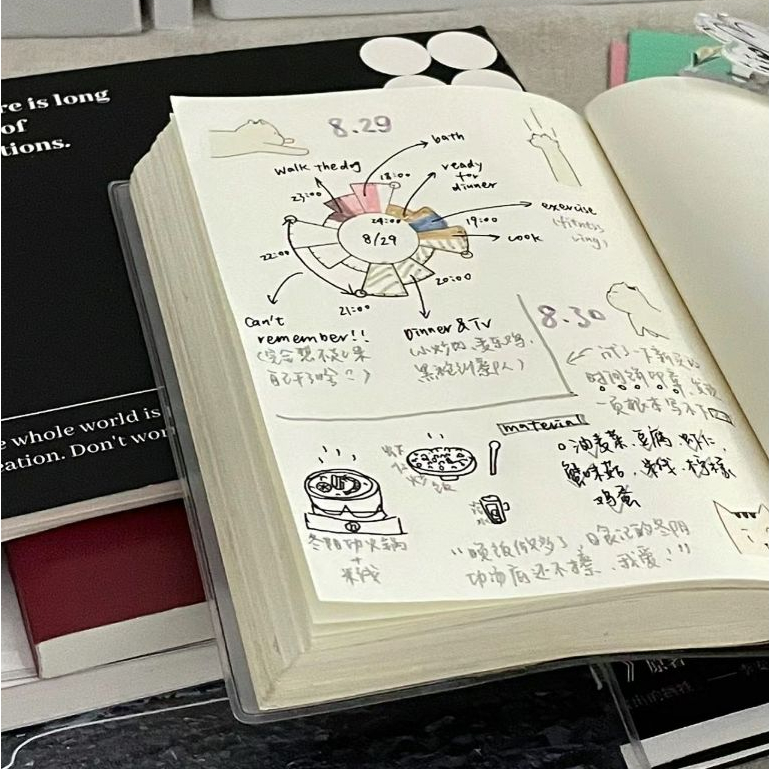 re is long
of
tions.
8.29
bath
walk the dog
18:00
ready
for
dinner
23:00
24:00
19:00
exercise
(fitness
ring)
8/29
cook
22:00
20:00
21:00
Can't
remember!!
(完全想不起来
自己干了啥?)
Dinner & TV
(小炒肉、麦乐鸡、
黑袍纠察队)
8.30
试了一下新买的
时间轴印章,发现
一页根本写不下
material
油麦菜、豆腐、虾仁
蟹味菇、米线、柠檬
鸡蛋
虾仁
炒饭
冬阴功火锅
+
米线
"晚饭做多了,日食记的冬阴
功汤底还不错,我爱!"
e whole world is
eation. Don't wor